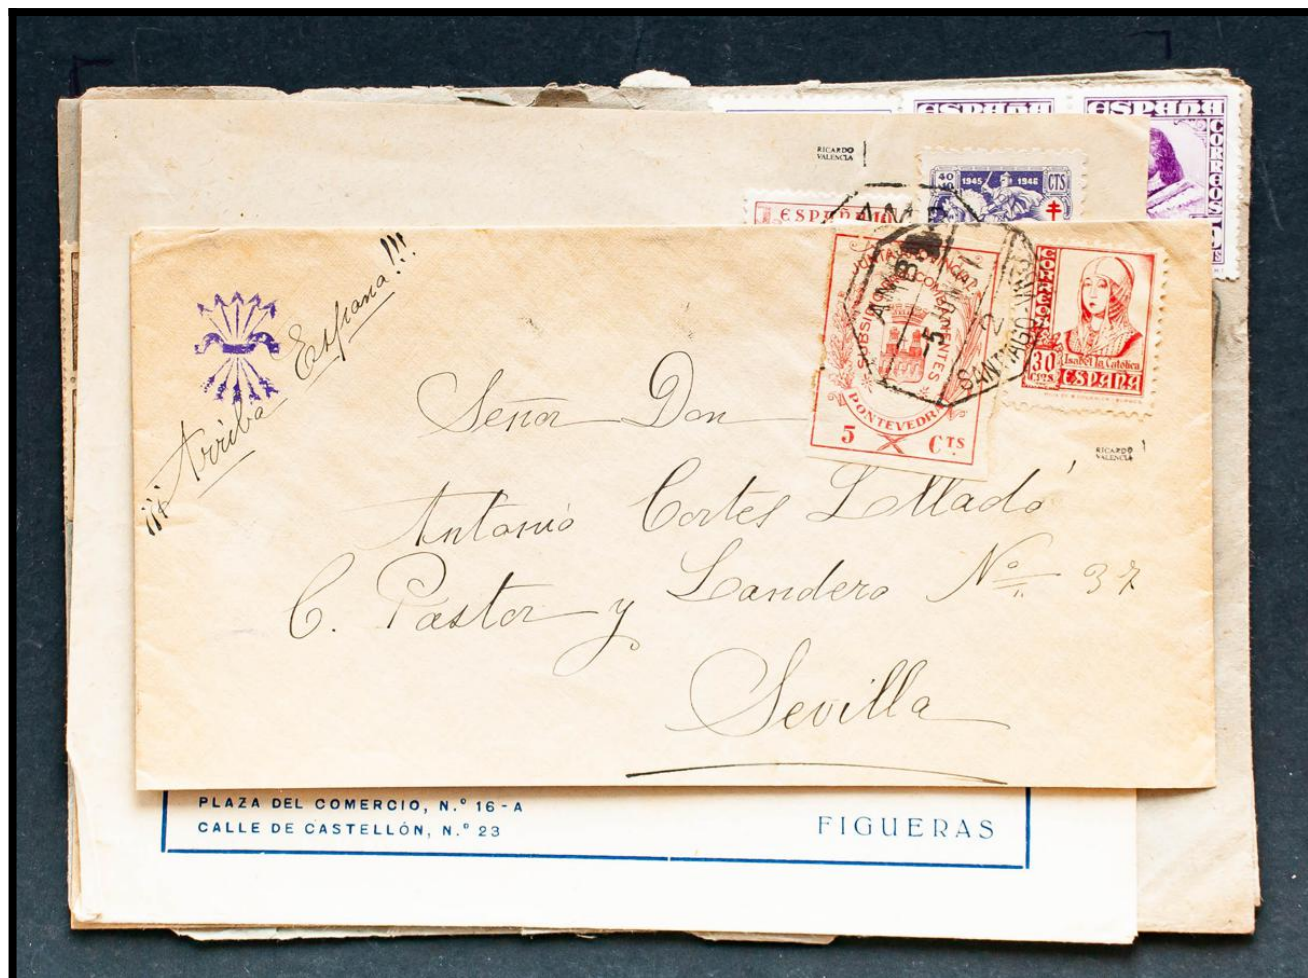 ESPAÑA
ESPAÑA
CORREOS
RICARDO
VALENCIA
40
1945 1946
CTS
ESPAÑA
¡¡¡Arriba España!!!
JUNTA PROVINCIAL
SUBSIDIO COMBATIENTES
PONTEVEDRA
5 CTS
AMB
-5
SANTIAGO
CORREOS
30
CTS
Isabel la Católica
ESPAÑA
RICARDO
VALENCIA
Señor Don
Antonio Cortes Lllado
C. Pastor y Landero Nº 37
Sevilla
PLAZA DEL COMERCIO, N.º 16-A
CALLE DE CASTELLÓN, N.º 23
FIGUERAS